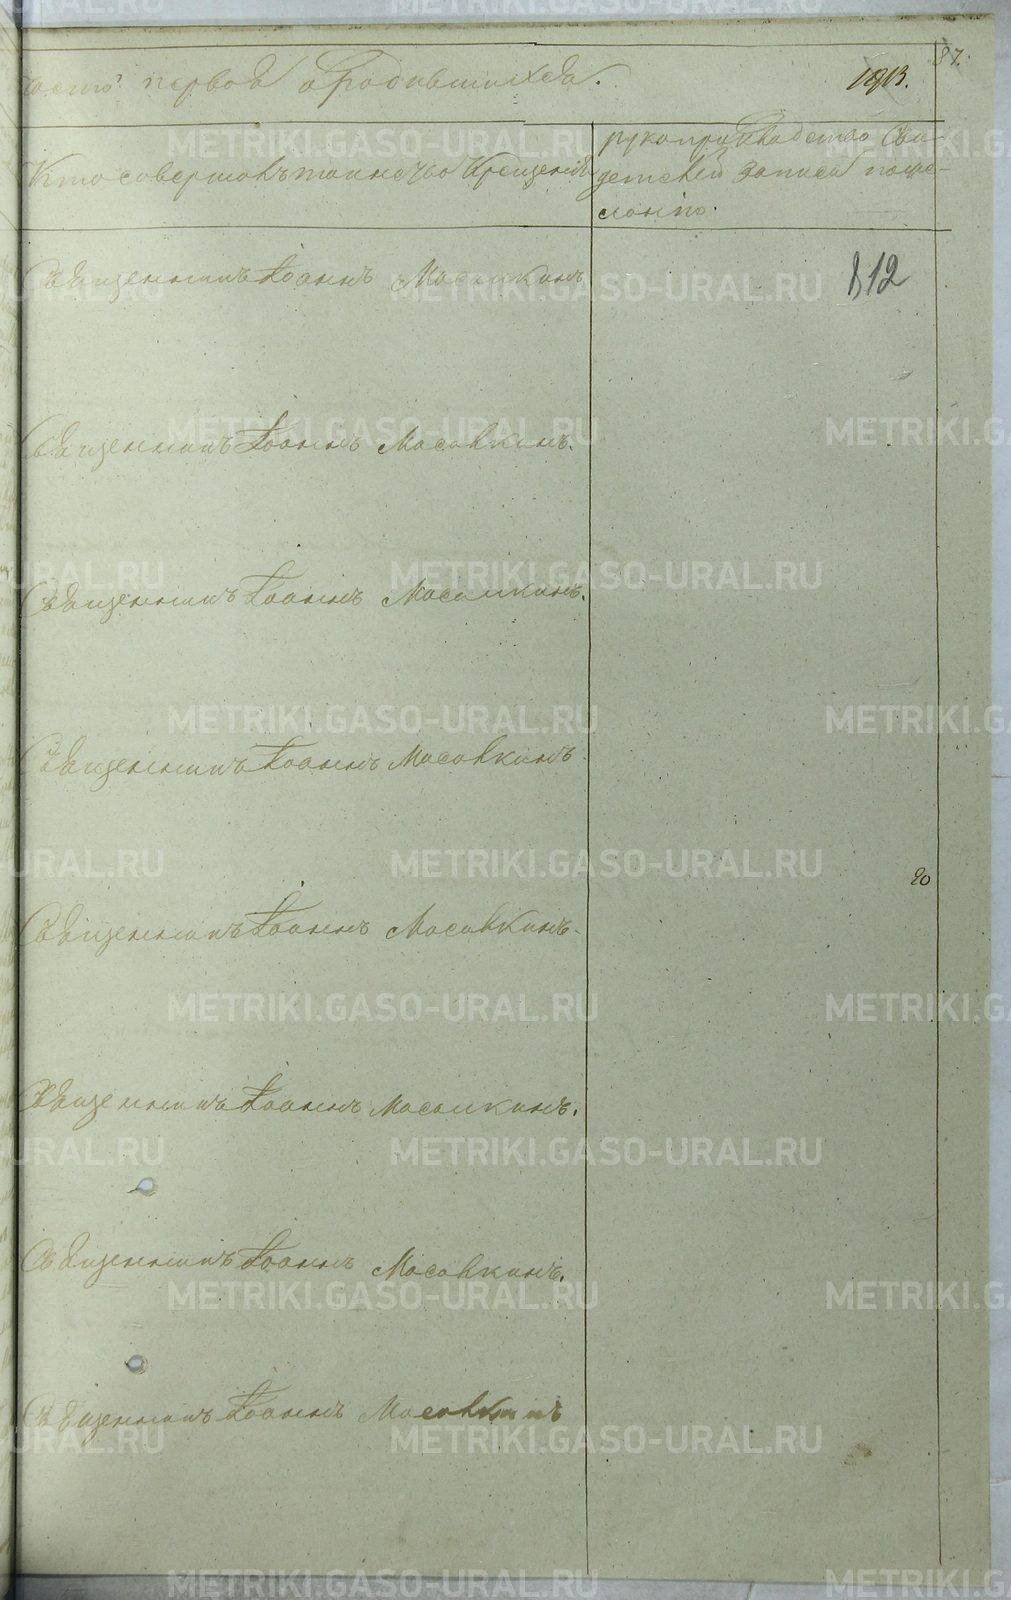 87.
часть первая о родившихся. 1913.
Кто совершалъ таинство крещенія
рукоприкладство сви-
детелей записи по же-
ланію.
Священникъ Іоаннъ Масалкинъ 112
Священникъ Іоаннъ Масалкинъ.
Священникъ Іоаннъ Масалкинъ.
Священникъ Іоаннъ Масалкинъ
20
Священникъ Іоаннъ Масалкинъ
Священникъ Іоаннъ Масалкинъ.
Священникъ Іоаннъ Масалкинъ.
Священникъ Іоаннъ Масалкинъ
METRIKI.GASO-URAL.RU